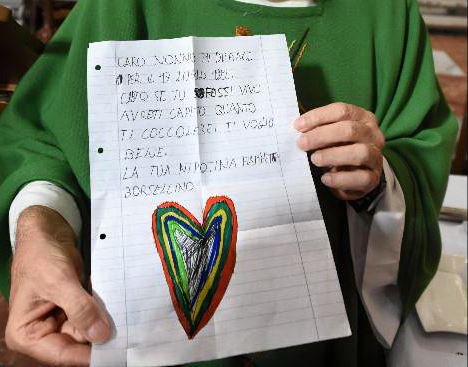 CARO NONNO
19 LUGLIO 1992.
SE TU FOSSI VIVO
AVRESTI CAPITO QUANTO
TI COCCOLAREI. TI VOGLIO
BENE.
LA TUA NIPOTINA FIAMMETTA
BORSELLINO